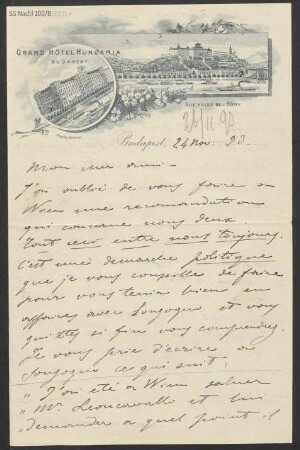 SS Nachl 102/B
GRAND HÔTEL HUNGARIA
BUDAPEST
VUE PRISE DE L'HÔTEL
Budapest, 24 Nov. 93.
Mon cher ami.
J'ai oublié de vous faire a
Wien une recomandation
qui concerne nous deux.
Tout ceci entre nous toujours.
C'est une demarche politique
que je vous conseille de faire
pour vous tenir bien en
affaires avec Sonzogno et vous
qui êtes si fin vous comprendrez.
Je vous prie d'écrire a
Sonzogno ce qui suit:
„ J'ai été a Wien saluer
„ Mr. Leoncavallo et lui
„ demander a quel point il